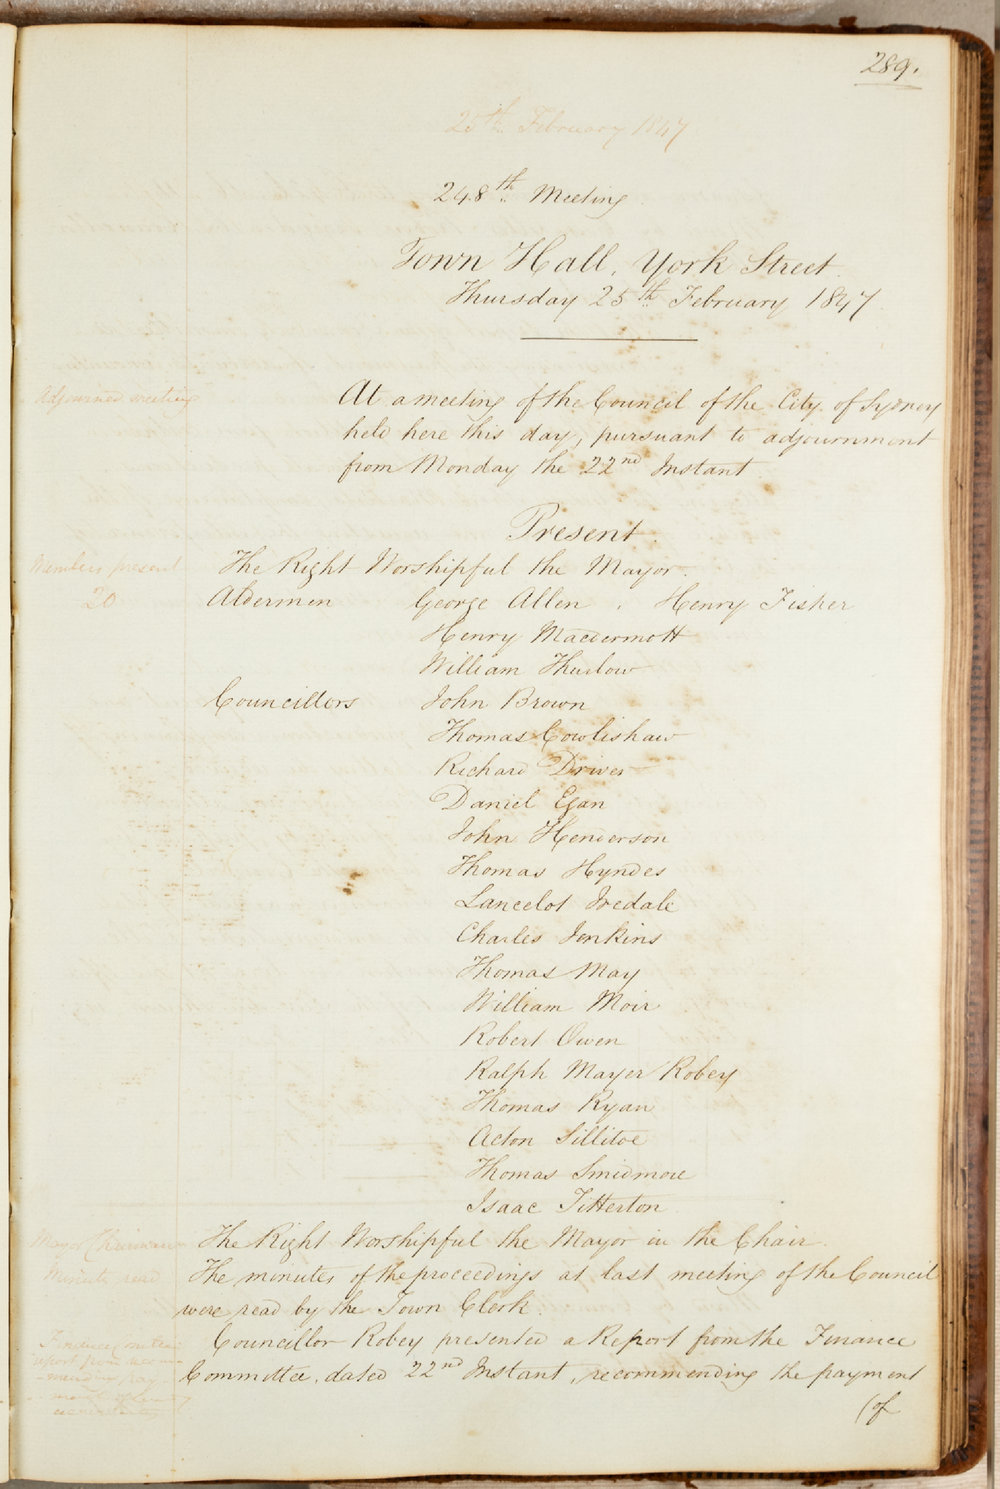 289.
25th February 1847
248th Meeting
Town Hall, York Street
Thursday 25th February 1847
Adjourned meeting
At a meeting of the Council of the City of Sydney
held here this day, pursuant to adjournment
from Monday the 22nd Instant
Present.
Members present
20
The Right Worshipful the Mayor.
Aldermen George Allen . Henry Fisher
Henry Macdermott
William Thurlow
Councillors John Brown
Thomas Cowlishaw
Richard Driver
Daniel Egan
John Henderson
Thomas Hyndes
Lancelot Iredale
Charles Jenkins
Thomas May
William Moir
Robert Owen
Ralph Mayer Robey
Thomas Ryan
Acton Sillitoe
Thomas Smidmore
Isaac Titterton
Mayor Chairman
The Right Worshipful the Mayor in the Chair.
Minutes read
The minutes of the proceedings at last meeting of the Council
were read by the Town Clerk.
Finance Committee
report from recom-
-mending pay-
-ment of
Councillor Robey presented a Report from the Finance
Committee, dated 22nd Instant, recommending the payment
(of